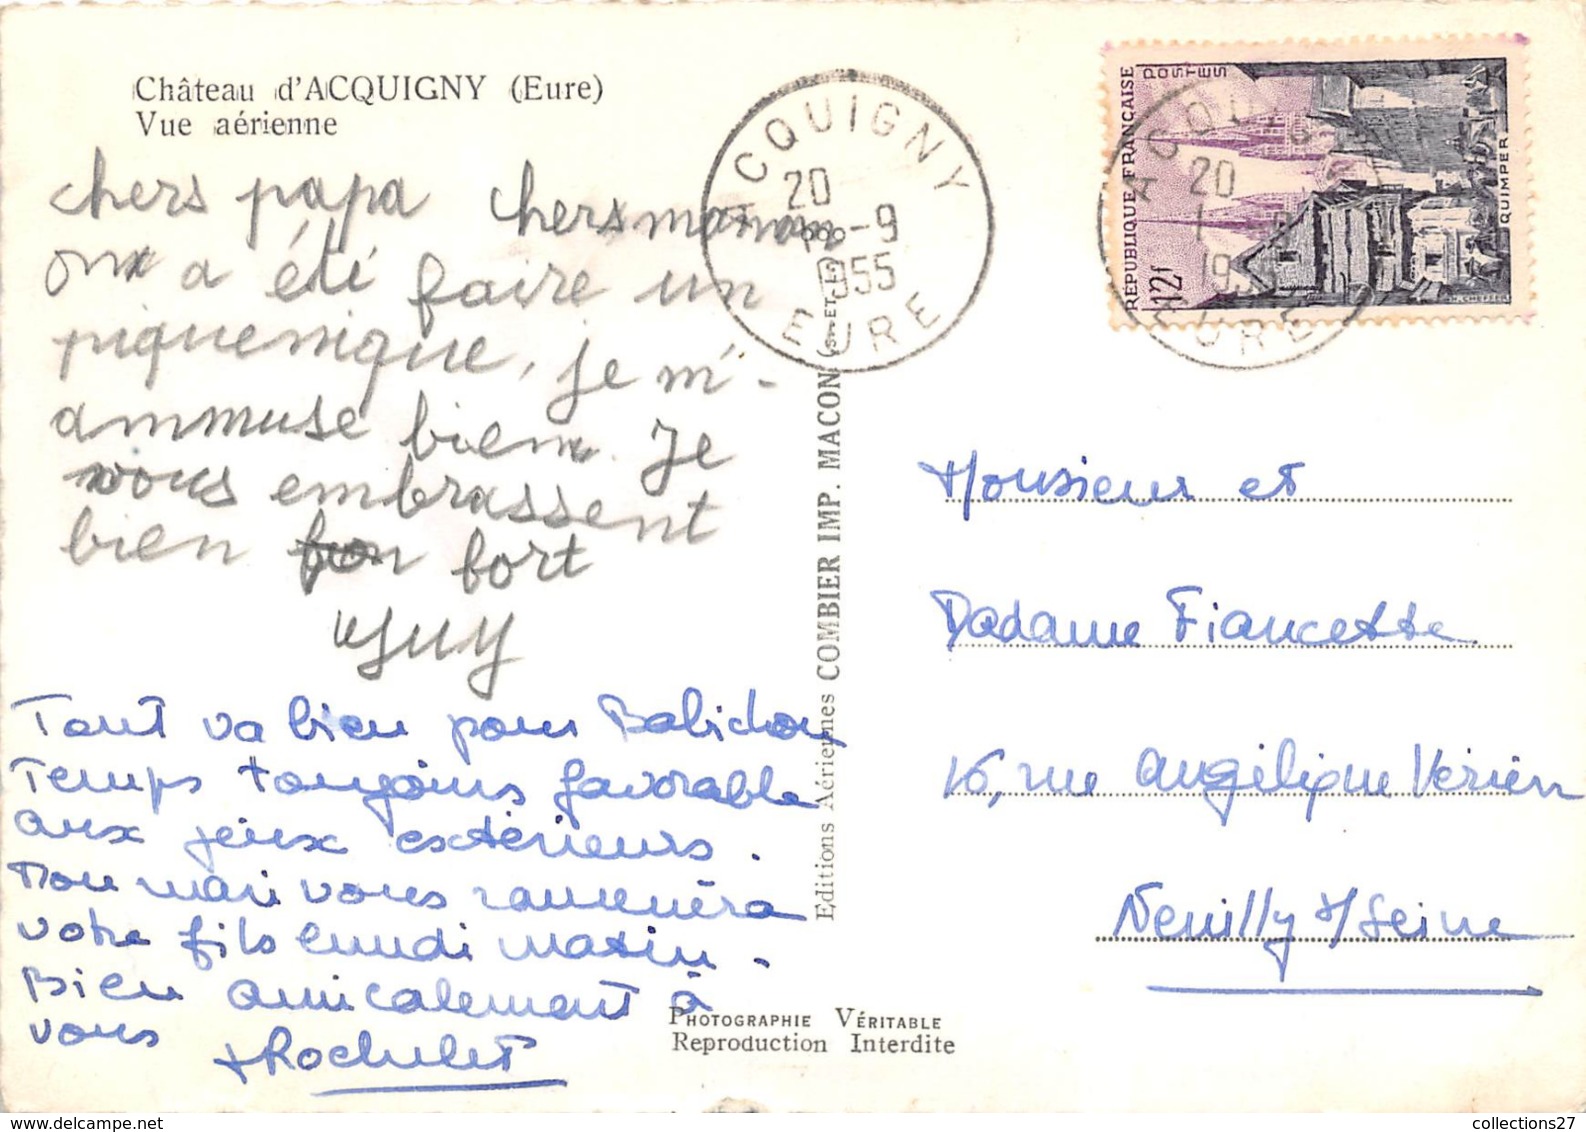 Château d'ACQUIGNY (Eure)
Vue aérienne
chers papa chers maman
on a été faire un
piquenique, je m'-
ammuse bien. Je
vous embrassent
bien fort
Guy
Tout va bien pour Babichou
Temps toujours favorable
aux jeux extérieurs.
Mon mari vous ramenéra
votre fils lundi matin.
Bien amicalement à
vous
Editions Aériennes COMBIER IMP. MACON (S.-ET-L.)
PHOTOGRAPHIE VÉRITABLE
Reproduction Interdite
ACQUIGNY
20
-9
1955
EURE
RÉPUBLIQUE FRANÇAISE
POSTES
12f
QUIMPER
ACQUIGNY
20
EURE
Monsieur et
Madame Fiancette
16, rue Angélique Vérien
Neuilly s/ Seine
collections27